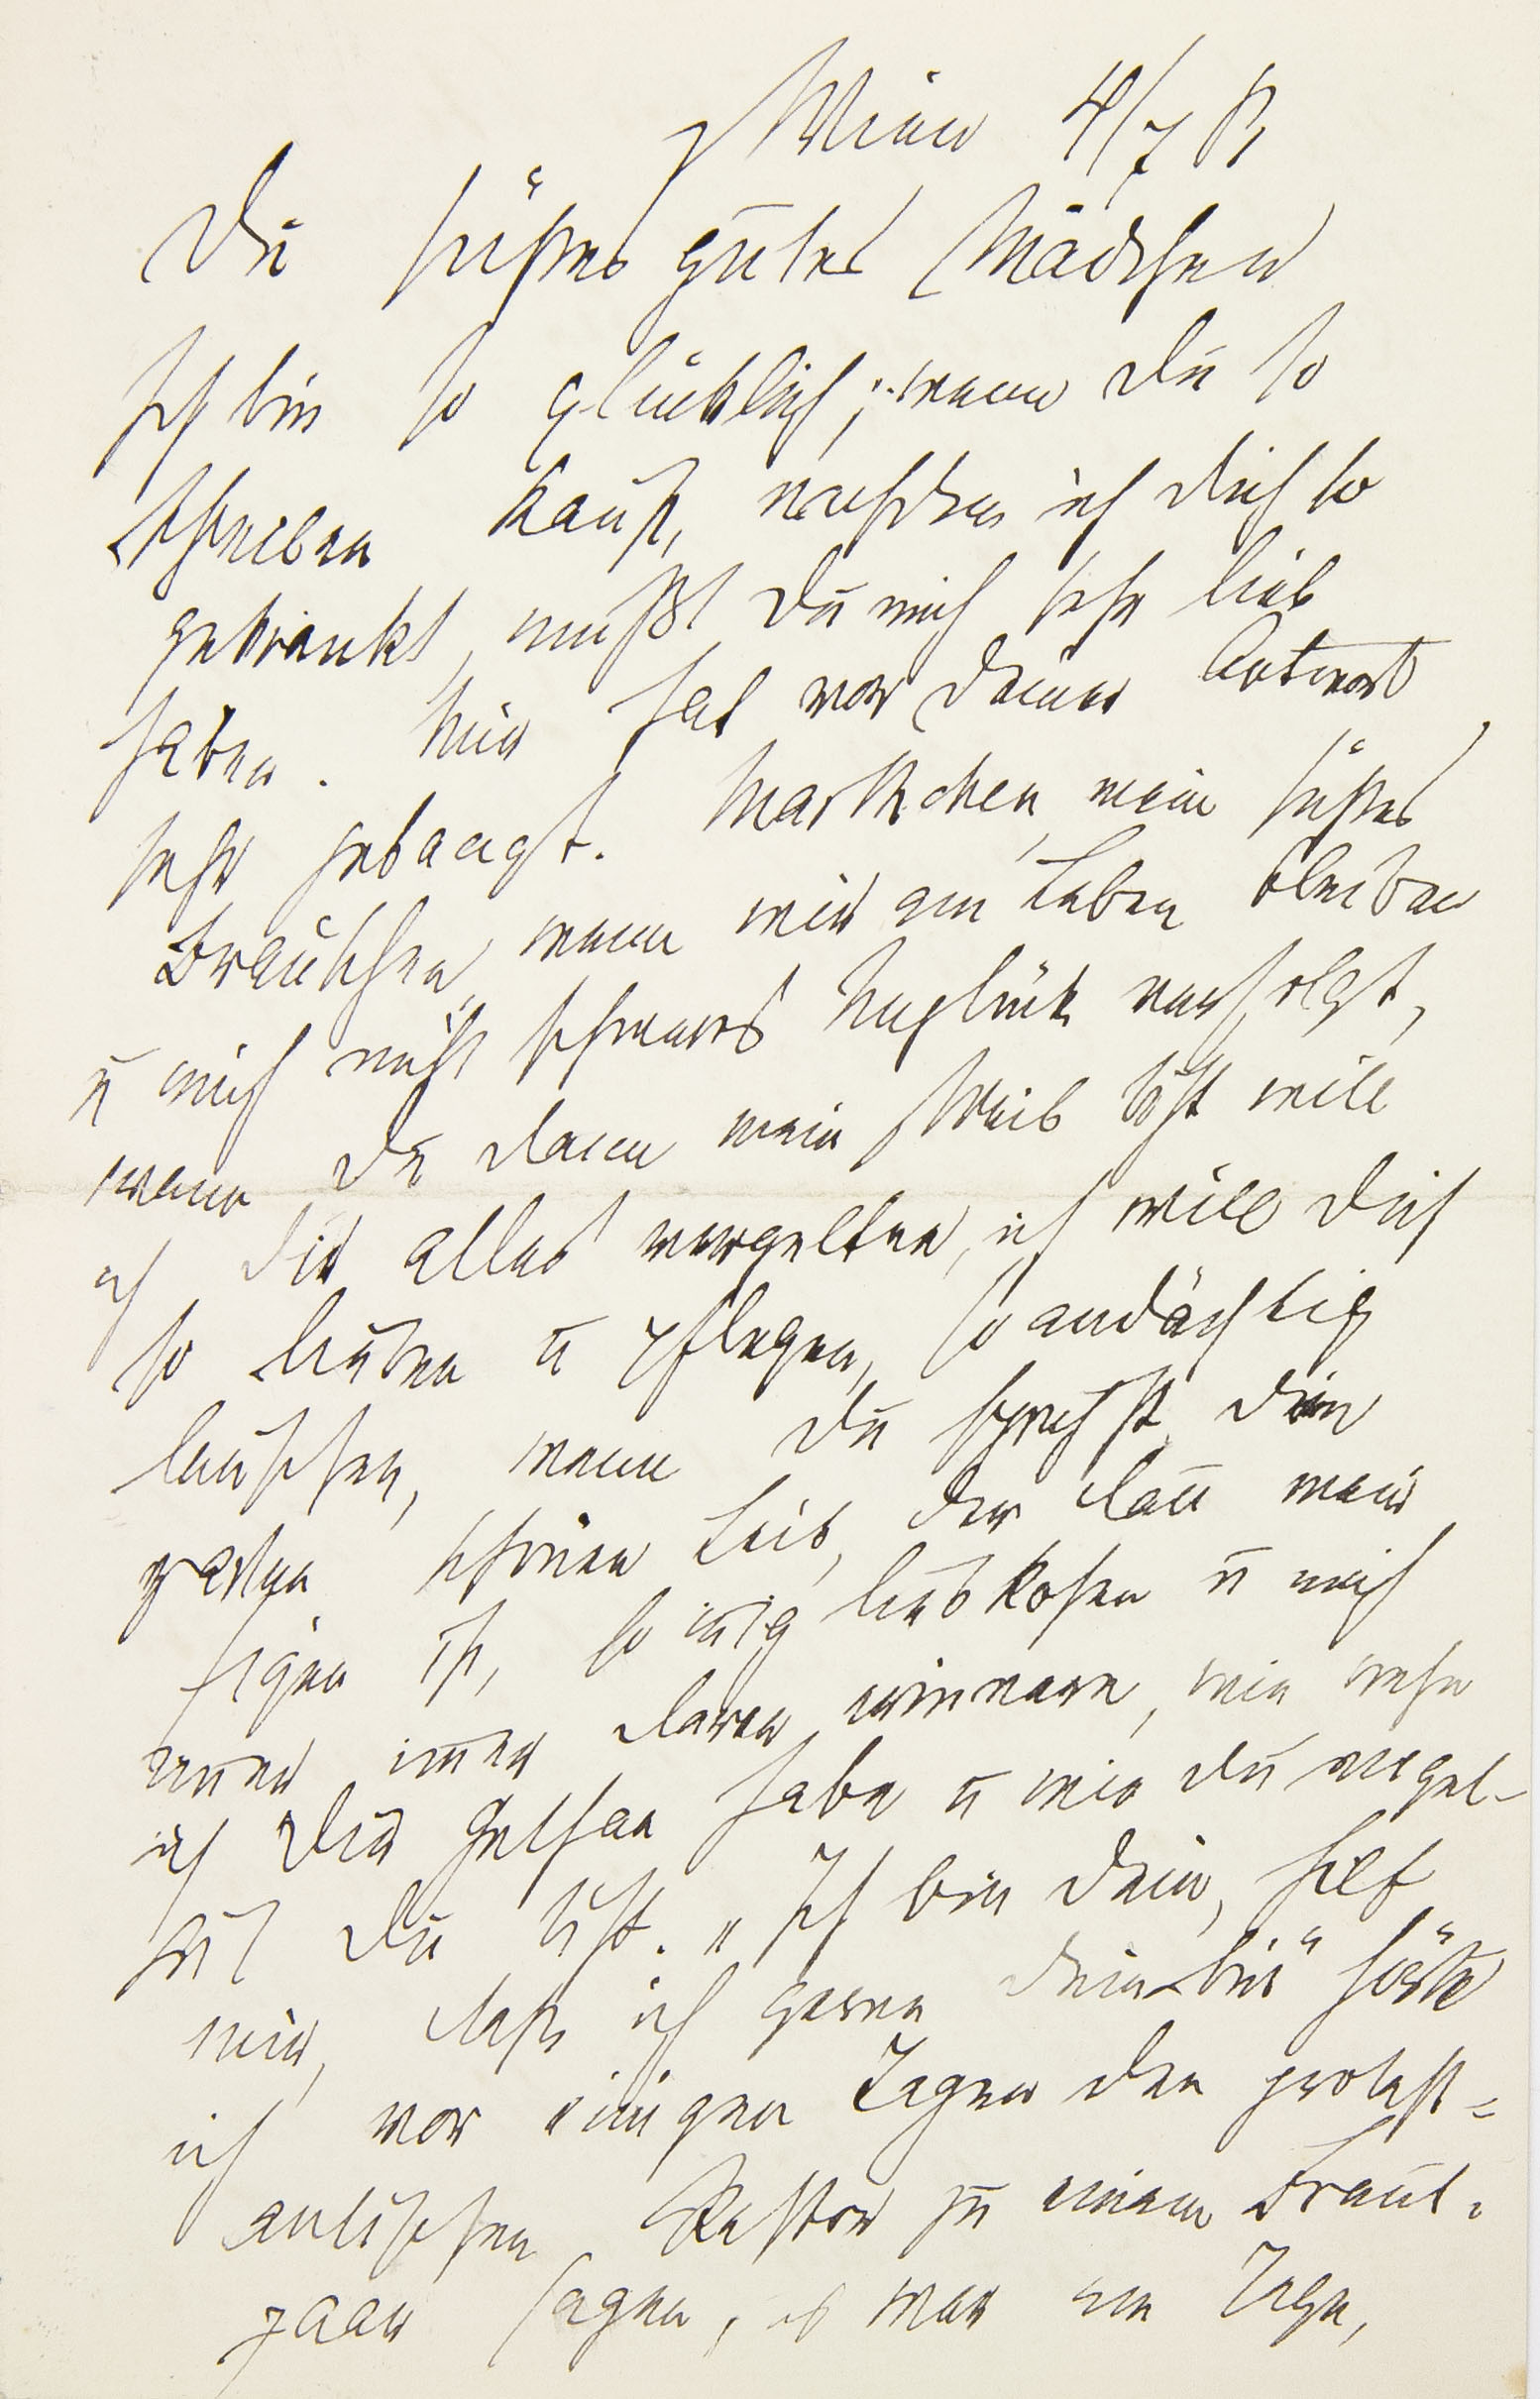 Wien 4/7 81
Du süßes gutes Mädchen
Ich bin so glücklich, wenn Du so
schreiben kannst, nachdem ich Dich so
gekränkt, mußt Du mich sehr lieb
haben. Mir hat vor Deiner Antwort
sehr gebangt. Marthchen, mein süßes
Bräutchen, wenn wir am Leben bleiben
u mich nicht schweres Unglück verfolgt,
wenn Du dann mein Weib bist will
ich Dir alles vergelten, ich will Dich
so lieben u pflegen, so andächtig
lauschen, wenn Du sprichst, Dein
zarten schönen Leib, der dann mein
eigen ist, so innig liebkosen u mich
immer daran erinnern, wie wehe
ich Dir gethan habe u wie Du engel-
gut Du bist. „Ich bin Dein, hilf
mir, daß ich gerne Dein bin“ hörte
ich vor einigen Tagen den protest=
antischen Pastor zu einem Braut-
paar sagen, es war am Tage,